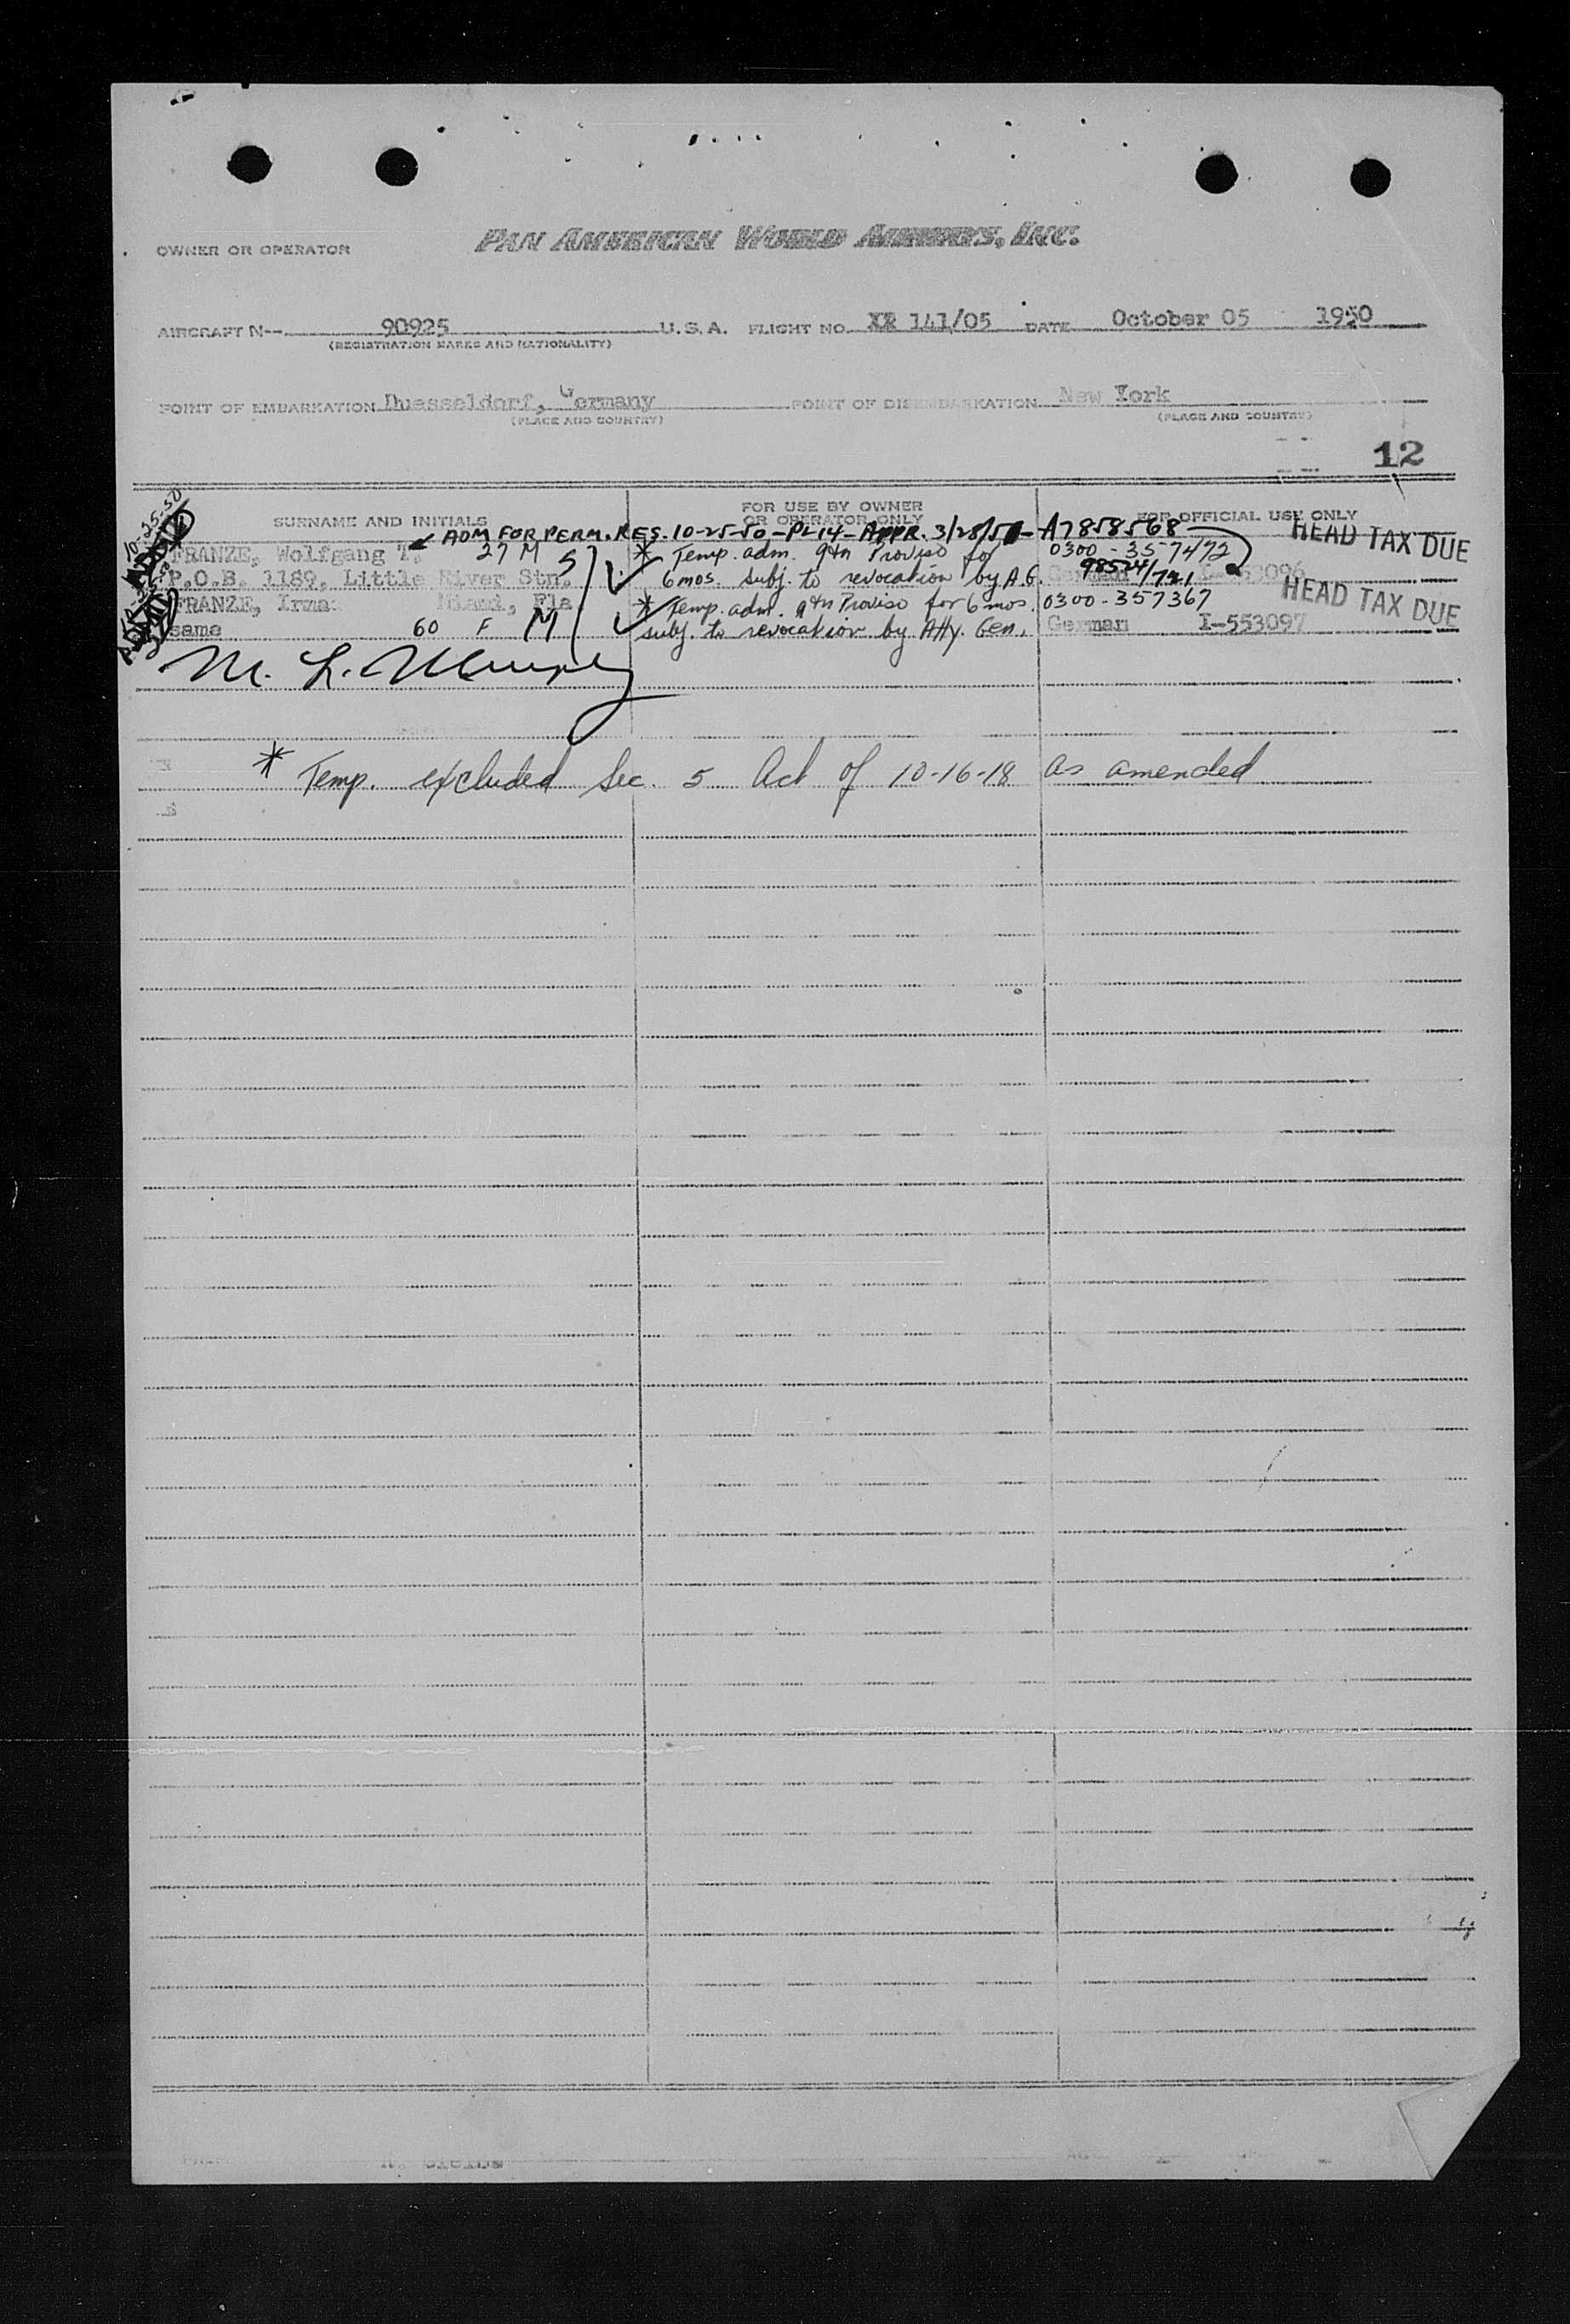 OWNER OR OPERATOR PAN AMERICAN WORLD AIRWAYS, INC.
AIRCRAFT N-- 90925 U.S.A. FLIGHT NO. XR 141/05 DATE October 05 1950
(REGISTRATION MARKS AND NATIONALITY)
POINT OF EMBARKATION Duesseldorf, Germany POINT OF DISEMBARKATION New York
(PLACE AND COUNTRY) (PLACE AND COUNTRY)
12
SURNAME AND INITIALS FOR USE BY OWNER OR OPERATOR ONLY FOR OFFICIAL USE ONLY
10-25-50
ADM FOR PERM. RES. 10-25-50 - PL 14 - APPR. 3/28/51 - A7858568 HEAD TAX DUE
FRANZE, Wolfgang T. 27 M S * Temp. adm. 9th Proviso for 0300-357472
P.O.B. 1189, Little River Stn. 6 mos. subj. to revocation by A.G. German 98524/721
FRANZE, Irma Miami, Fla * Temp. adm. 9th Proviso for 6 mos. 0300-357367 HEAD TAX DUE
same 60 F M subj. to revocation by Atty. Gen. German I-553097
M. L. Murphy
* Temp. excluded Sec. 5 Act of 10-16-18 as amended